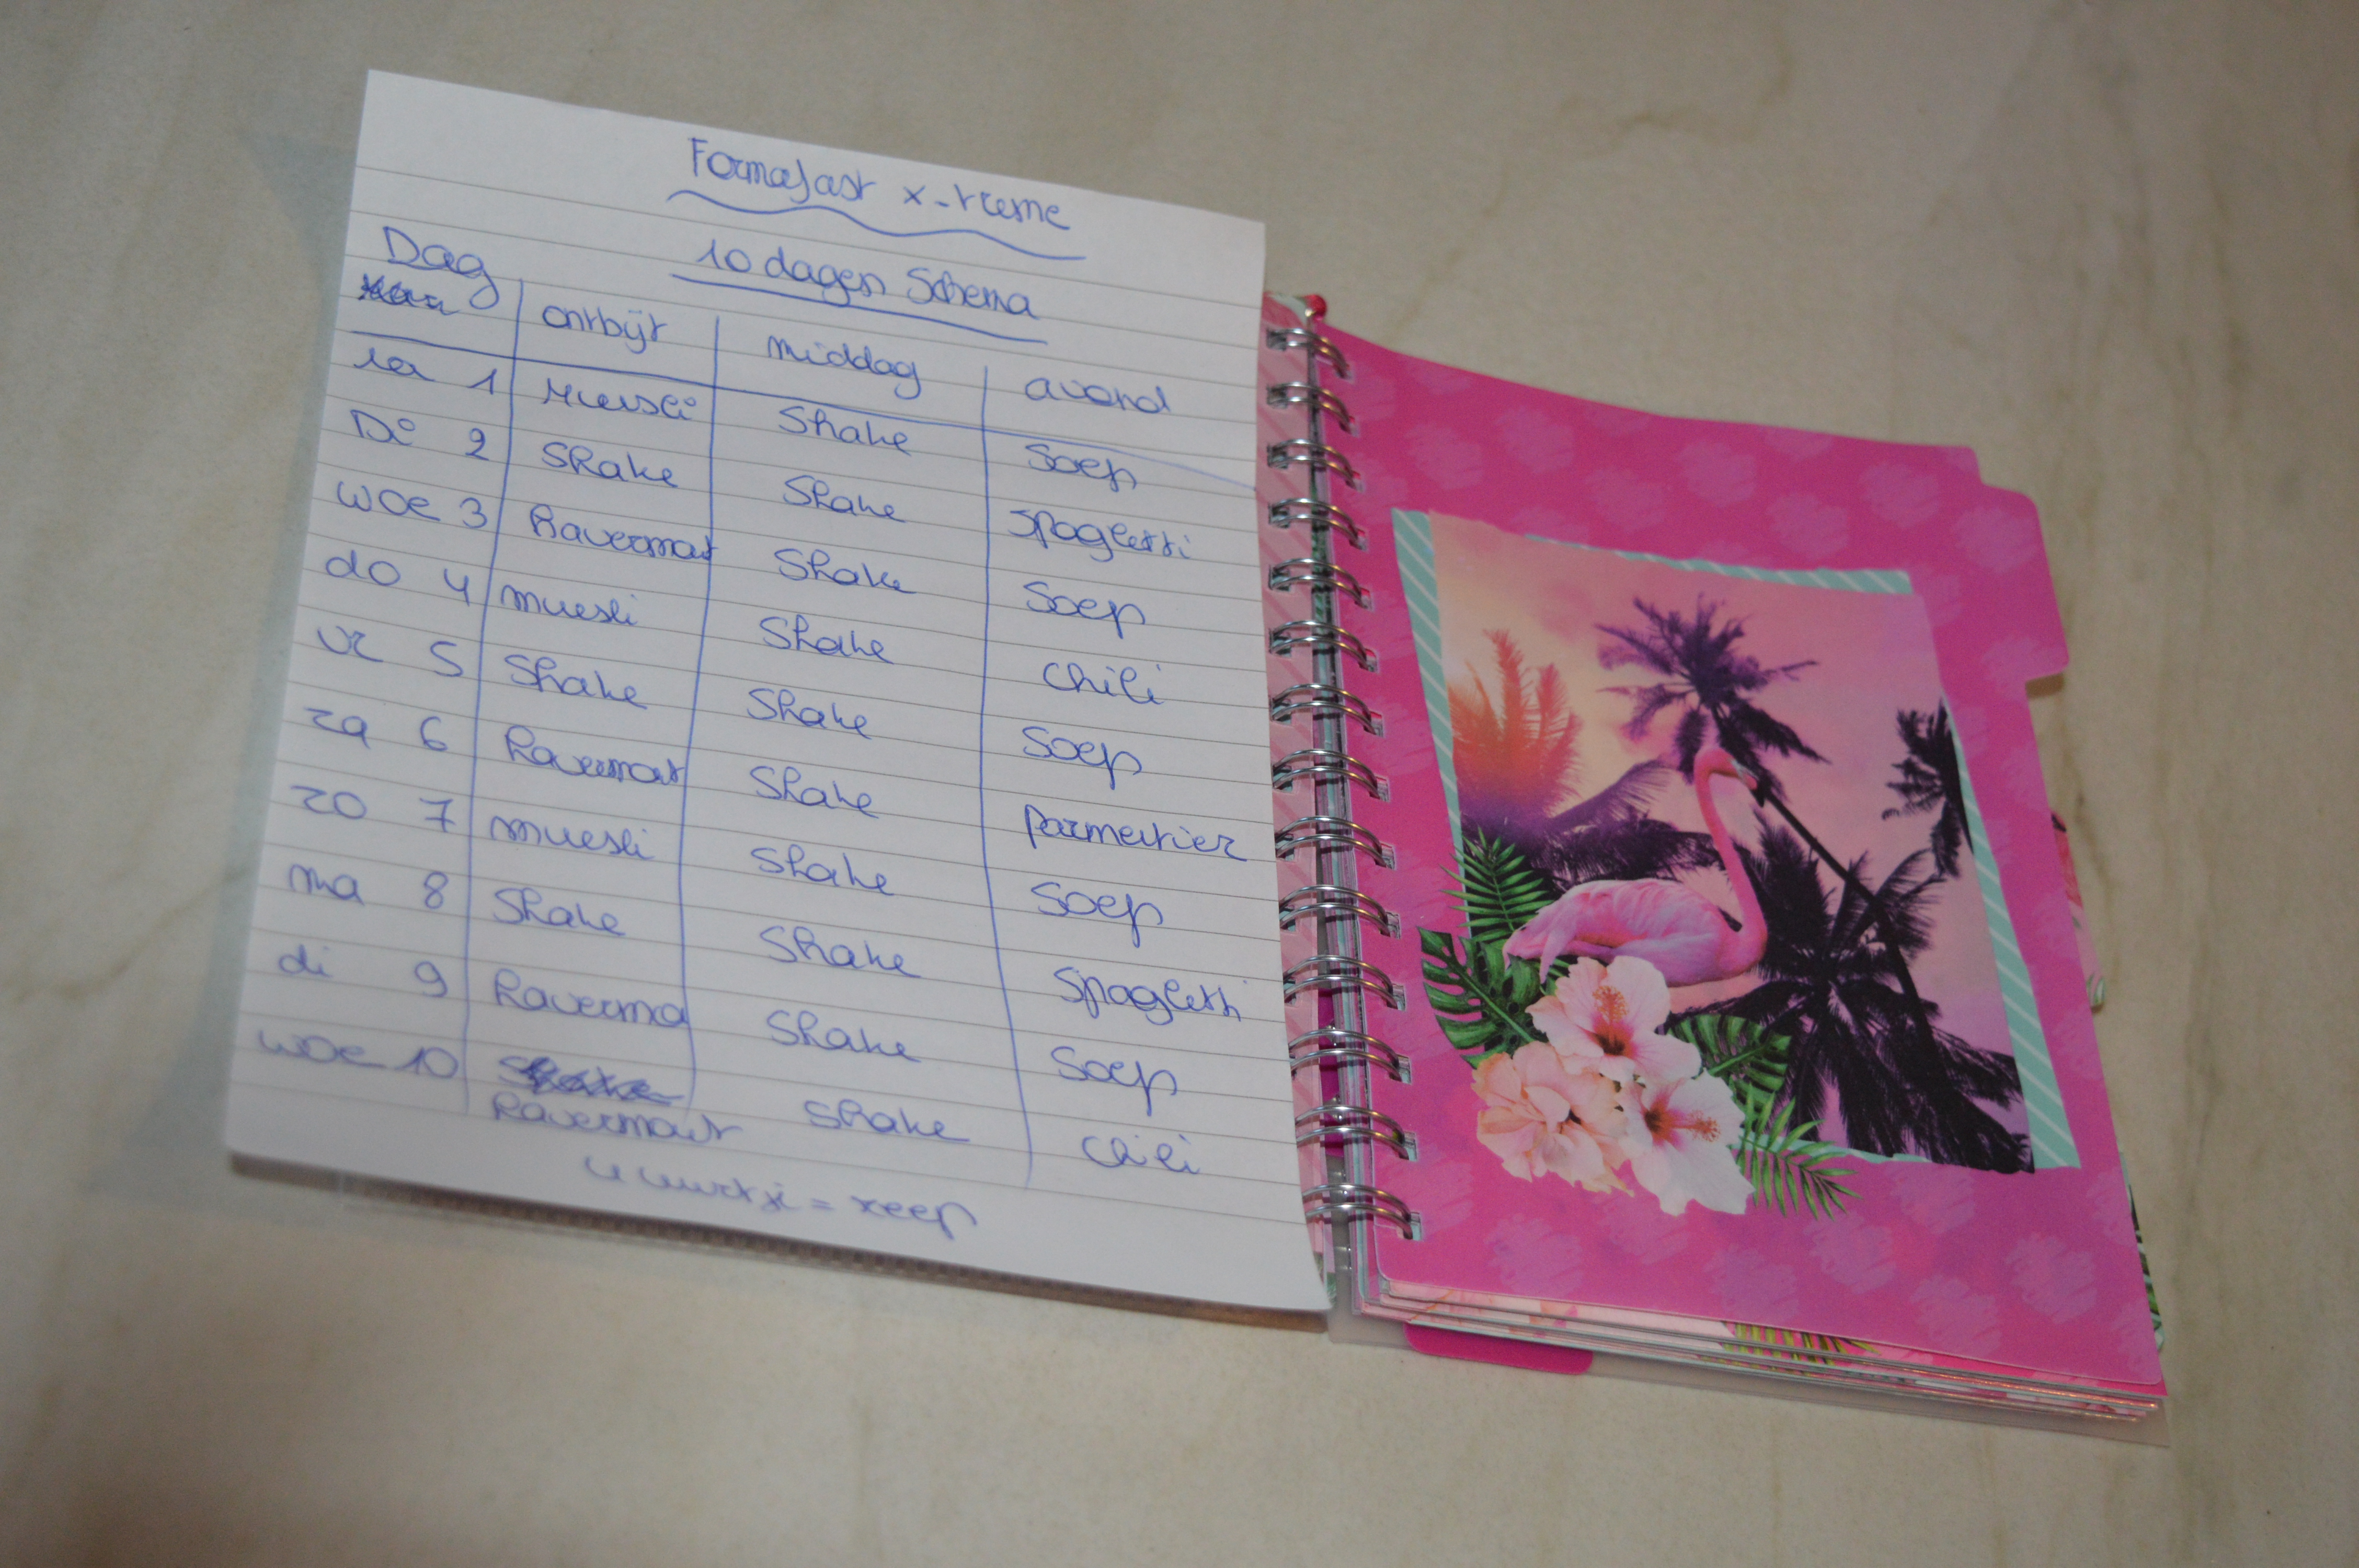 Formafast x-treme
10 dagen Schema
Dag ontbijt middag avond
1 Muesli Shake Soep
Di 2 Shake Shake Spaghetti
woe 3 Havermout Shake Soep
do 4 muesli Shake Chili
vr 5 Shake Shake Soep
za 6 Havermout Shake Parmentier
zo 7 muesli Shake Soep
ma 8 Shake Shake Spaghetti
di 9 Haverma Shake Soep
woe 10 Havermout Shake Chili
4 uurtje = reep